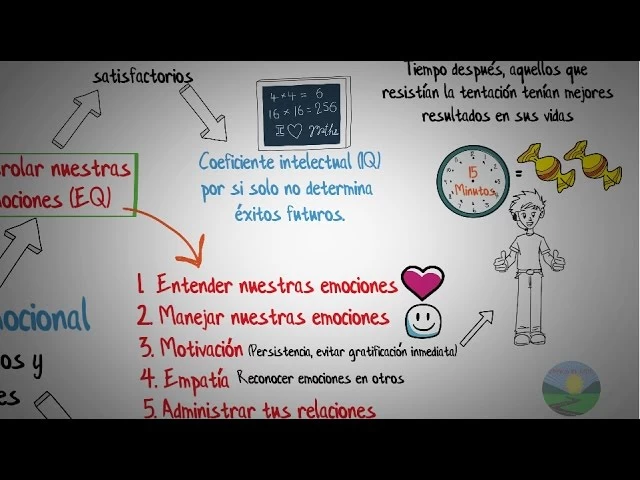 satisfactorios
4 * 4 = 6
16 * 16 = 256
I ♡ Maths
Tiempo después, aquellos que
resistían la tentación tenían mejores
resultados en sus vidas
rolar nuestras
ociones (EQ)
Coeficiente intelectual (IQ)
por si solo no determina
éxitos futuros.
15
Minutos
=
1. Entender nuestras emociones
2. Manejar nuestras emociones
3. Motivación (Persistencia, evitar gratificación inmediata)
4. Empatía Reconocer emociones en otros
5. Administrar tus relaciones
ocional
os y
es